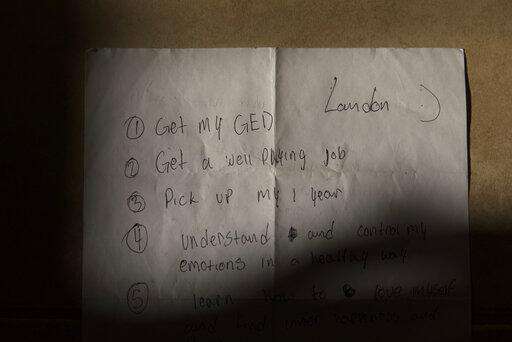 London :)
① Get my GED
② Get a well paying job
③ Pick up my 1 year
④ understand and control my
emotions in a healthy way
⑤ learn how to love myself
and find inner and